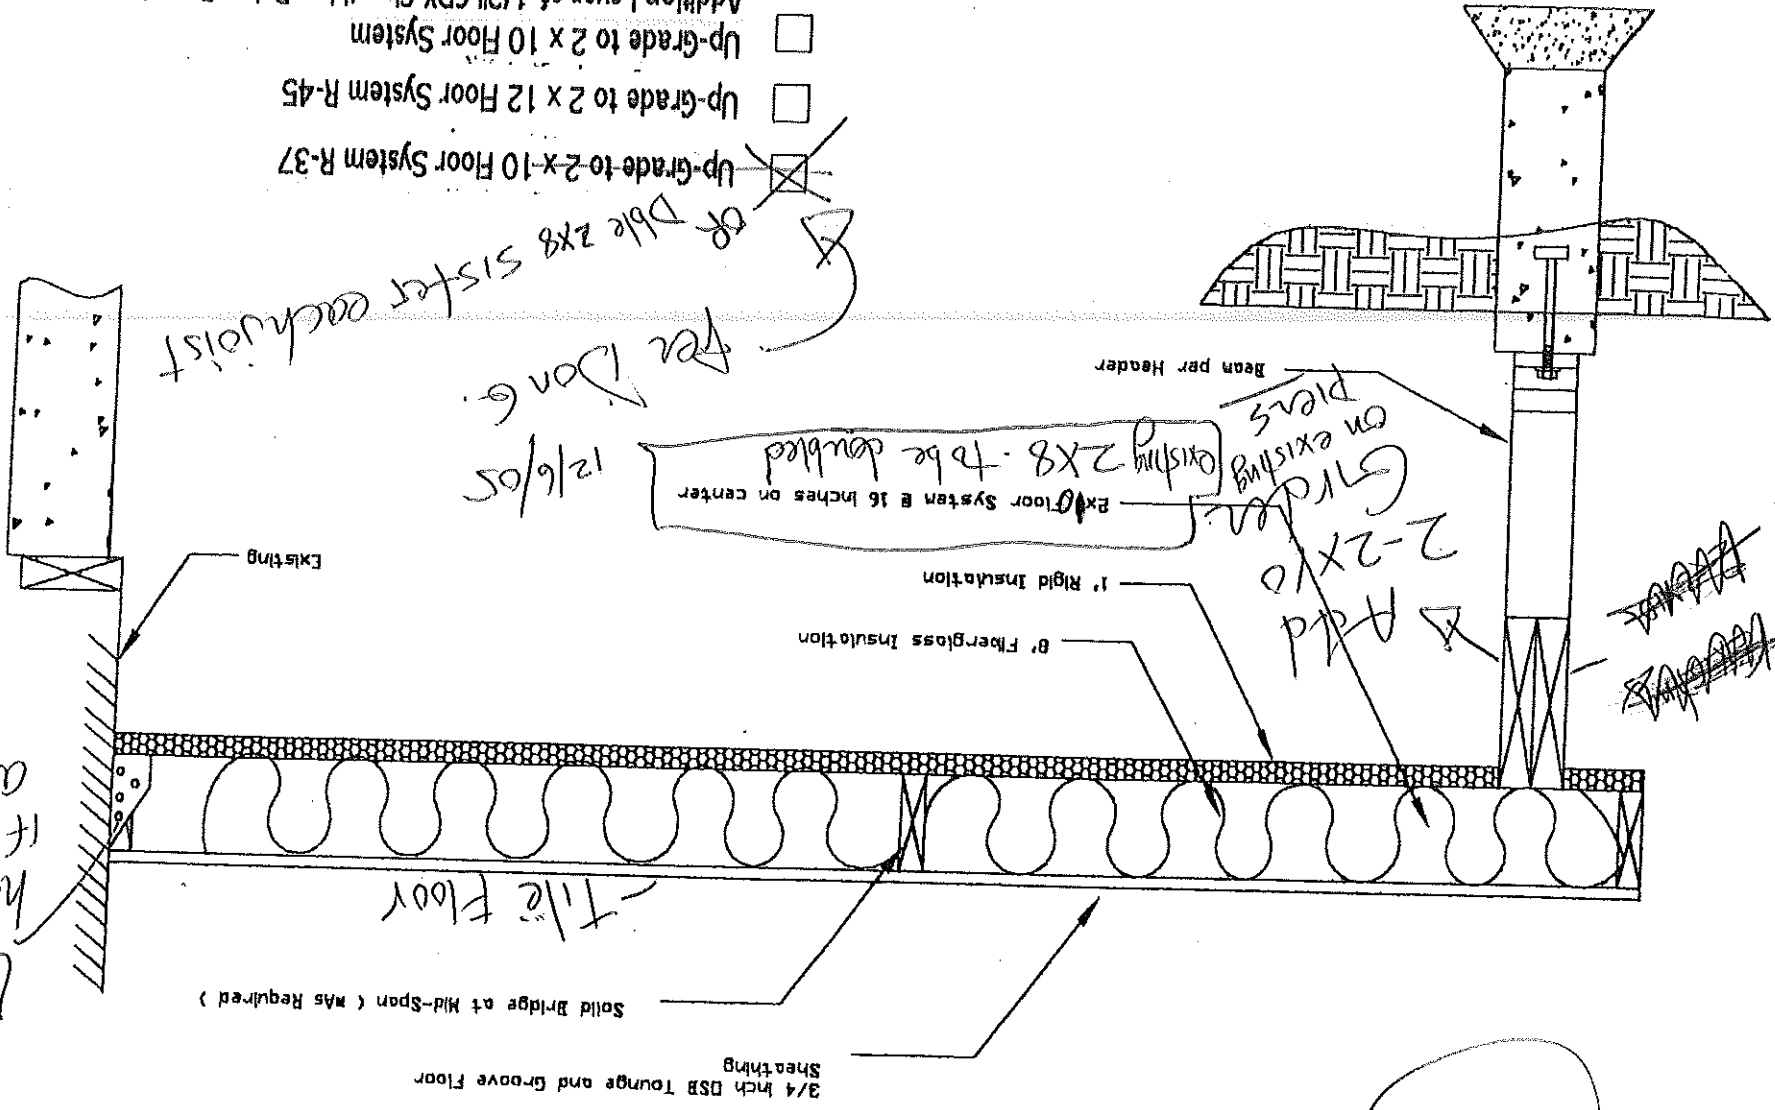 3/4 inch OSB Tounge and Groove Floor
Sheathing
Solid Bridge at Mid-Span ( *As Required )
- Tile Floor
8" Fiberglass Insulation
1" Rigid Insulation
2x10 Floor System @ 16 inches on center
existing 2x8 to be doubled
12/6/05
Per Don G.
Add
2-2x10
Girder
on existing
piers
Beam per Header
Existing
or Dble 2x8 sister each joist
Up-Grade to 2 x 10 Floor System R-37
Up-Grade to 2 x 12 Floor System R-45
Up-Grade to 2 x 10 Floor System